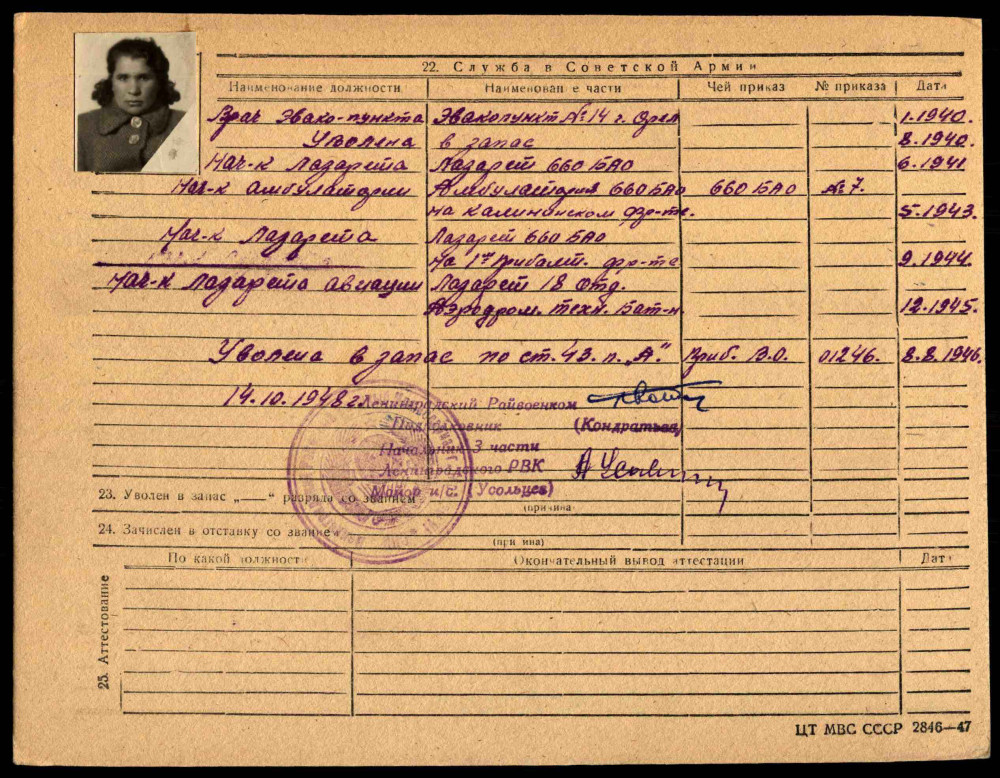 22. Служба в Советской Армии
Наименование должности Наименован е части Чей приказ № приказа Дата
Врач Эвако-пункта Эвакопункт № 14 г. Орел 1.1940.
Уволена в запас 8.1940.
Нач-к Лазарета Лазарет 660 БАО 6.1941
Нач-к амбулатории Амбулатория 660 БАО 660 БАО № 7.
на Калининском фр-те. 5.1943.
Нач-к Лазарета Лазарет 660 БАО
на 1й Прибалт. фр-те 9.1944.
Нач-к Лазарета авиации Лазарет 18 отд.
Аэродром. техн. бат-н. 12.1945.
Уволена в запас по ст. 43. п. „А" Приб. В.О. 01246. 8.8.1946.
14.10.1948 г. Ленинградский Райвоенком
Подполковник (Кондратьев)
Начальник 3 части
Ленинградского РВК
Майор и/с. (Усольцев)
23. Уволен в запас „ “ разряда со званием
(причина
24. Зачислен в отставку со звание
(при ина)
25. Аттестование
По какой должност Окончательный вывод аттестации Дат
ЦТ МВС СССР 2846—47